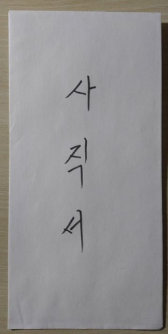 사직서